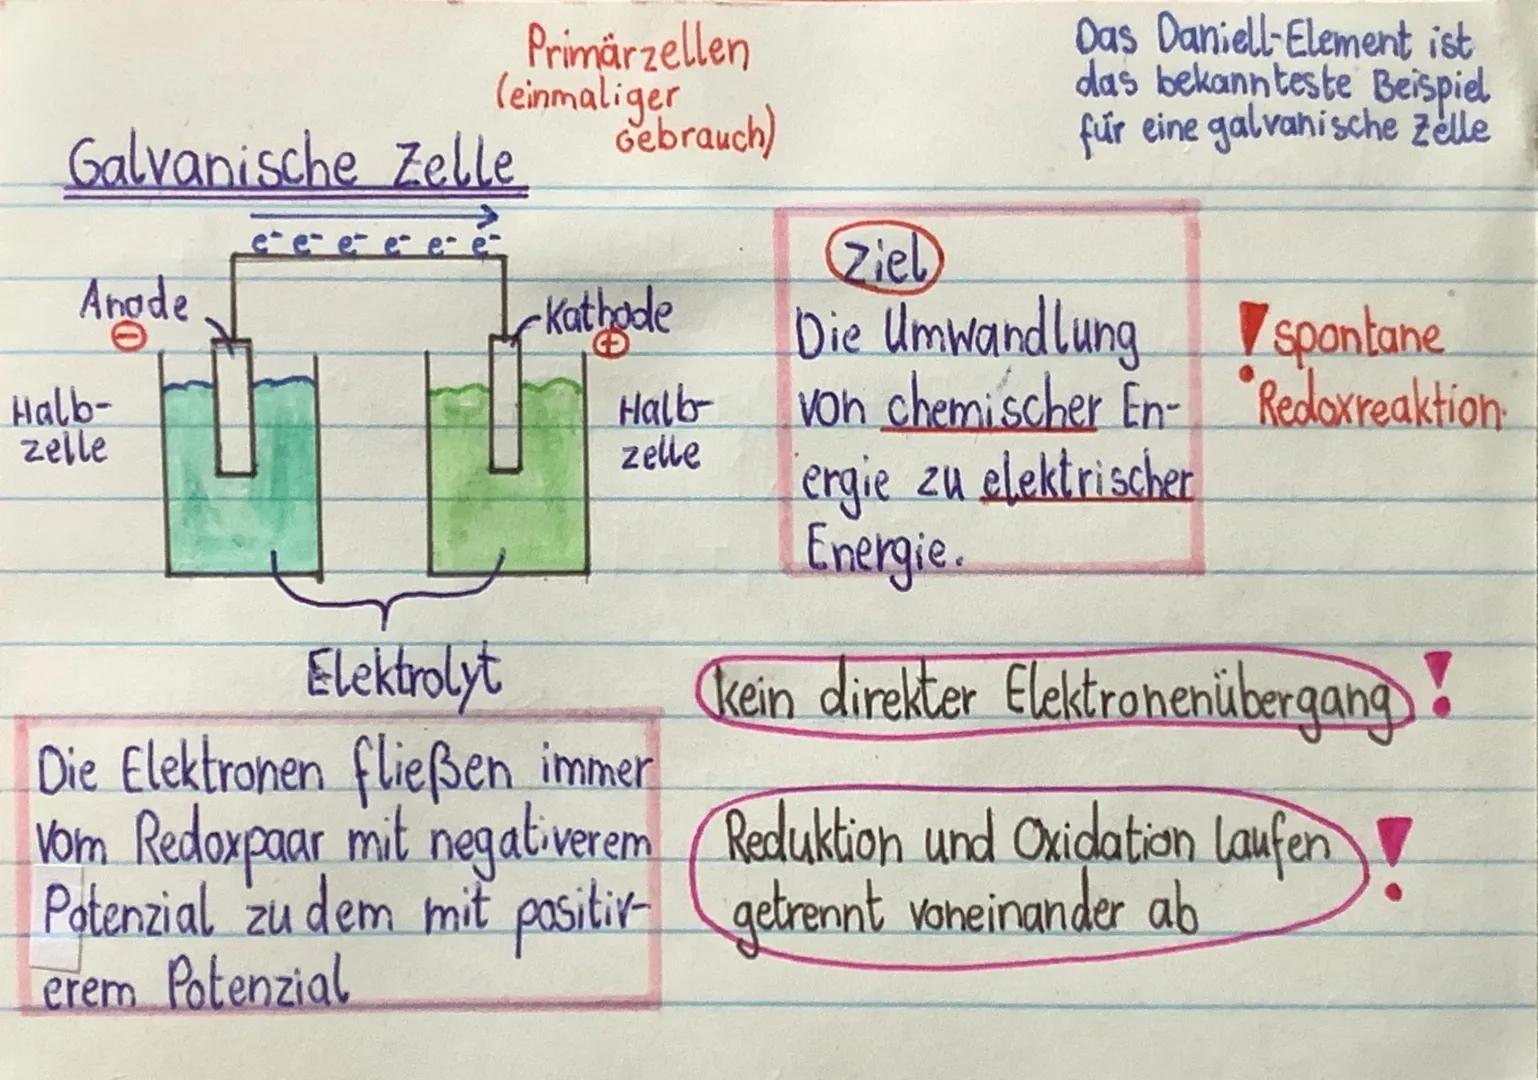 Primärzellen
(einmaliger
Gebrauch)
Das Daniell-Element ist
das bekannteste Beispiel
für eine galvanische Zelle
Galvanische Zelle
e- e- e- e- e- e-
Anode
-
Kathode
+
Halb-
zelle
Halb-
zelle
Elektrolyt
Ziel
Die Umwandlung
von chemischer En-
ergie zu elektrischer
Energie.
! spontane
Redoxreaktion
kein direkter Elektronenübergang !
Die Elektronen fließen immer
vom Redoxpaar mit negativerem
Potenzial zu dem mit positiv-
erem Potenzial
Reduktion und Oxidation laufen
getrennt voneinander ab !